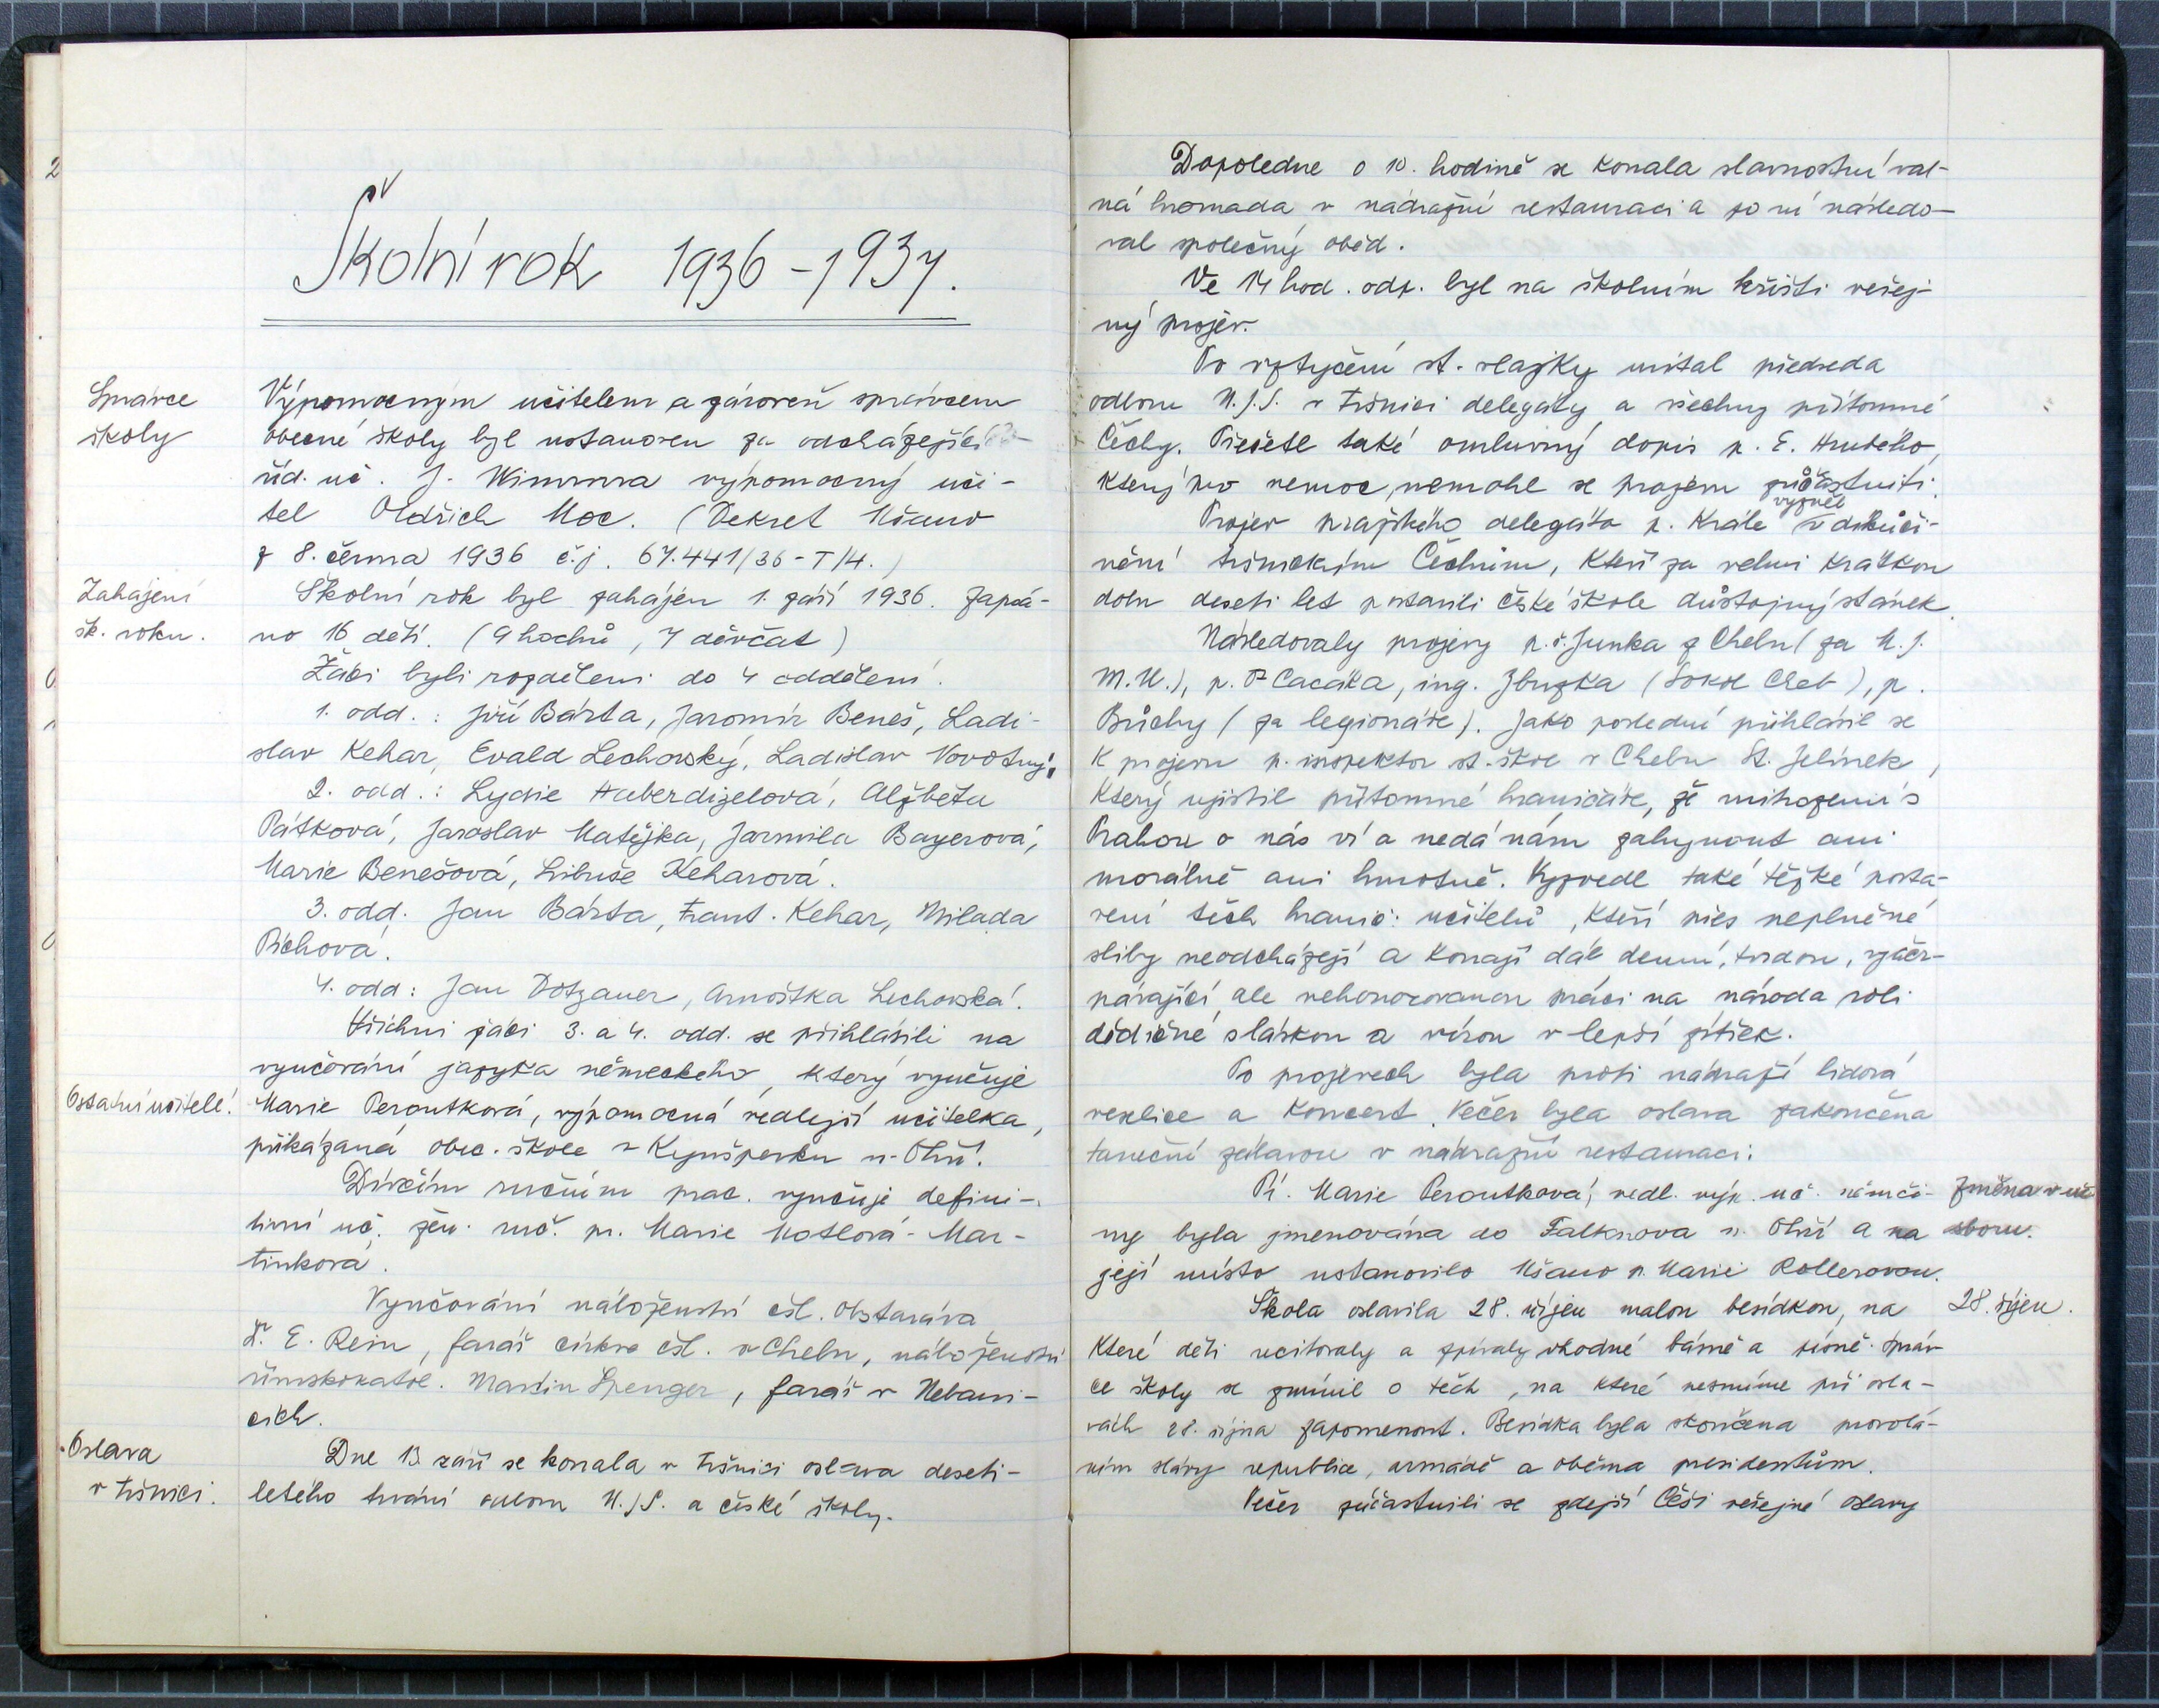 Školní rok 1936-1937.
Správce
školy
Výpomocným učitelem a zároveň správcem
obecné školy byl ustanoven za odcházejícího
říd. uč. J. Wimmra výpomocný uči-
tel Oldřich Moc. (Dekret Mšano
z 8. června 1936 č.j. 67.441/36-T/4.)
Zahájení
šk. roku.
Školní rok byl zahájen 1. září 1936. Zapsá-
no 16 dětí. (9 hochů, 7 děvčat)
Žáci byli rozděleni do 4 oddělení.
1. odd.: Jiří Bárta, Jaromír Beneš, Ladi-
slav Kehar, Evald Lechovský, Ladislav Novotný.
2. odd.: Lydie Haberdizelová, Alžběta
Pátková, Jaroslav Matějka, Jarmila Bayerová,
Marie Benešová, Libuše Keharová.
3. odd. Jan Bárta, Frant. Kehar, Milada
Píchová.
4. odd: Jan Dotzauer, Arnoštka Lechovská.
Všichni žáci 3. a 4. odd. se přihlásili na
vyučování jazyka německého, který vyučuje
Ostatní učitelé.
Marie Peroutková, výpomocná vedlejší učitelka,
přikázaná obec. škole v Kynšperku n. Ohří.
Dívčím ručním prac. vyučuje defini-
tivní uč. žen. ruč. pr. Marie Kotlová-Mar-
tinková.
Vyučování náboženství čsl. obstarává
Dr. E. Rein, farář církve čsl. v Chebu, náboženství
římskokatol. Martin Spenger, farář v Nebani-
cích.
Oslava
v Tršnici.
Dne 13. září se konala v Tršnici oslava deseti-
letého trvání odboru N.J.S. a české školy.
Dopoledne o 10. hodině se konala slavnostní val-
ná hromada v nádražní restauraci a po ní násled­o-
val společný oběd.
Ve 14 hod. odp. byl na školním hřišti veřej-
ný projev.
Po vztyčení st. vlajky uvítal předseda
odboru N.J.S. v Tršnici delegáty a všechny přítomné
Čechy. Přečetl také omluvný dopis p. E. Hrubého,
který pro nemoc nemohl se projevu zúčastniti.
Projev pražského delegáta p. Krále vyzněl v díkůči-
nění tršnickým Čechům, kteří za velmi krátkou
dobu deseti let postavili české škole důstojný stánek.
Následovaly projevy p. ř. Junka z Chebu (za N.J.
M.U.), p. Cacáka, ing. Zbuzka (Sokol Cheb), p.
Brůchy (za legionáře). Jako poslední přihlásil se
k projevu p. inspektor st. škol v Chebu St. Jelínek,
který ujistil přítomné hraničáře, že vnitrozemí s
Prahou o nás ví a nedá nám zahynout ani
morálně ani hmotně. Vyzvedl také těžké posta-
vení těch hranič. učitelů, kteří přes neplněné
sliby neodcházejí a konají dál denní, tvrdou, vyčer-
pávající, ale nehonorovanou práci na národa roli
dědičné s láskou a vírou v lepší zítřek.
Po projevech byla proti nádraží lidová
veselice a koncert. Večer byla oslava zakončena
taneční zábavou v nádražní restauraci.
Pí. Marie Peroutková, vedl. výp. uč. němči-
Změna v uč.
ny byla jmenována do Falknova n. Ohří a na
sboru.
její místo ustanovilo Mšano p. Marii Rollerovou.
Škola oslavila 28. říjen malou besídkou, na
28. říjen.
které děti recitovaly a zpívaly vhodné básně a písně. Správ-
ce školy se zmínil o těch, na které nesmíme při osla-
vách 28. října zapomenout. Besídka byla skončena provolá-
ním slávy republice, armádě a oběma presidentům.
Večer zúčastnili se zdejší Češi veřejné oslavy